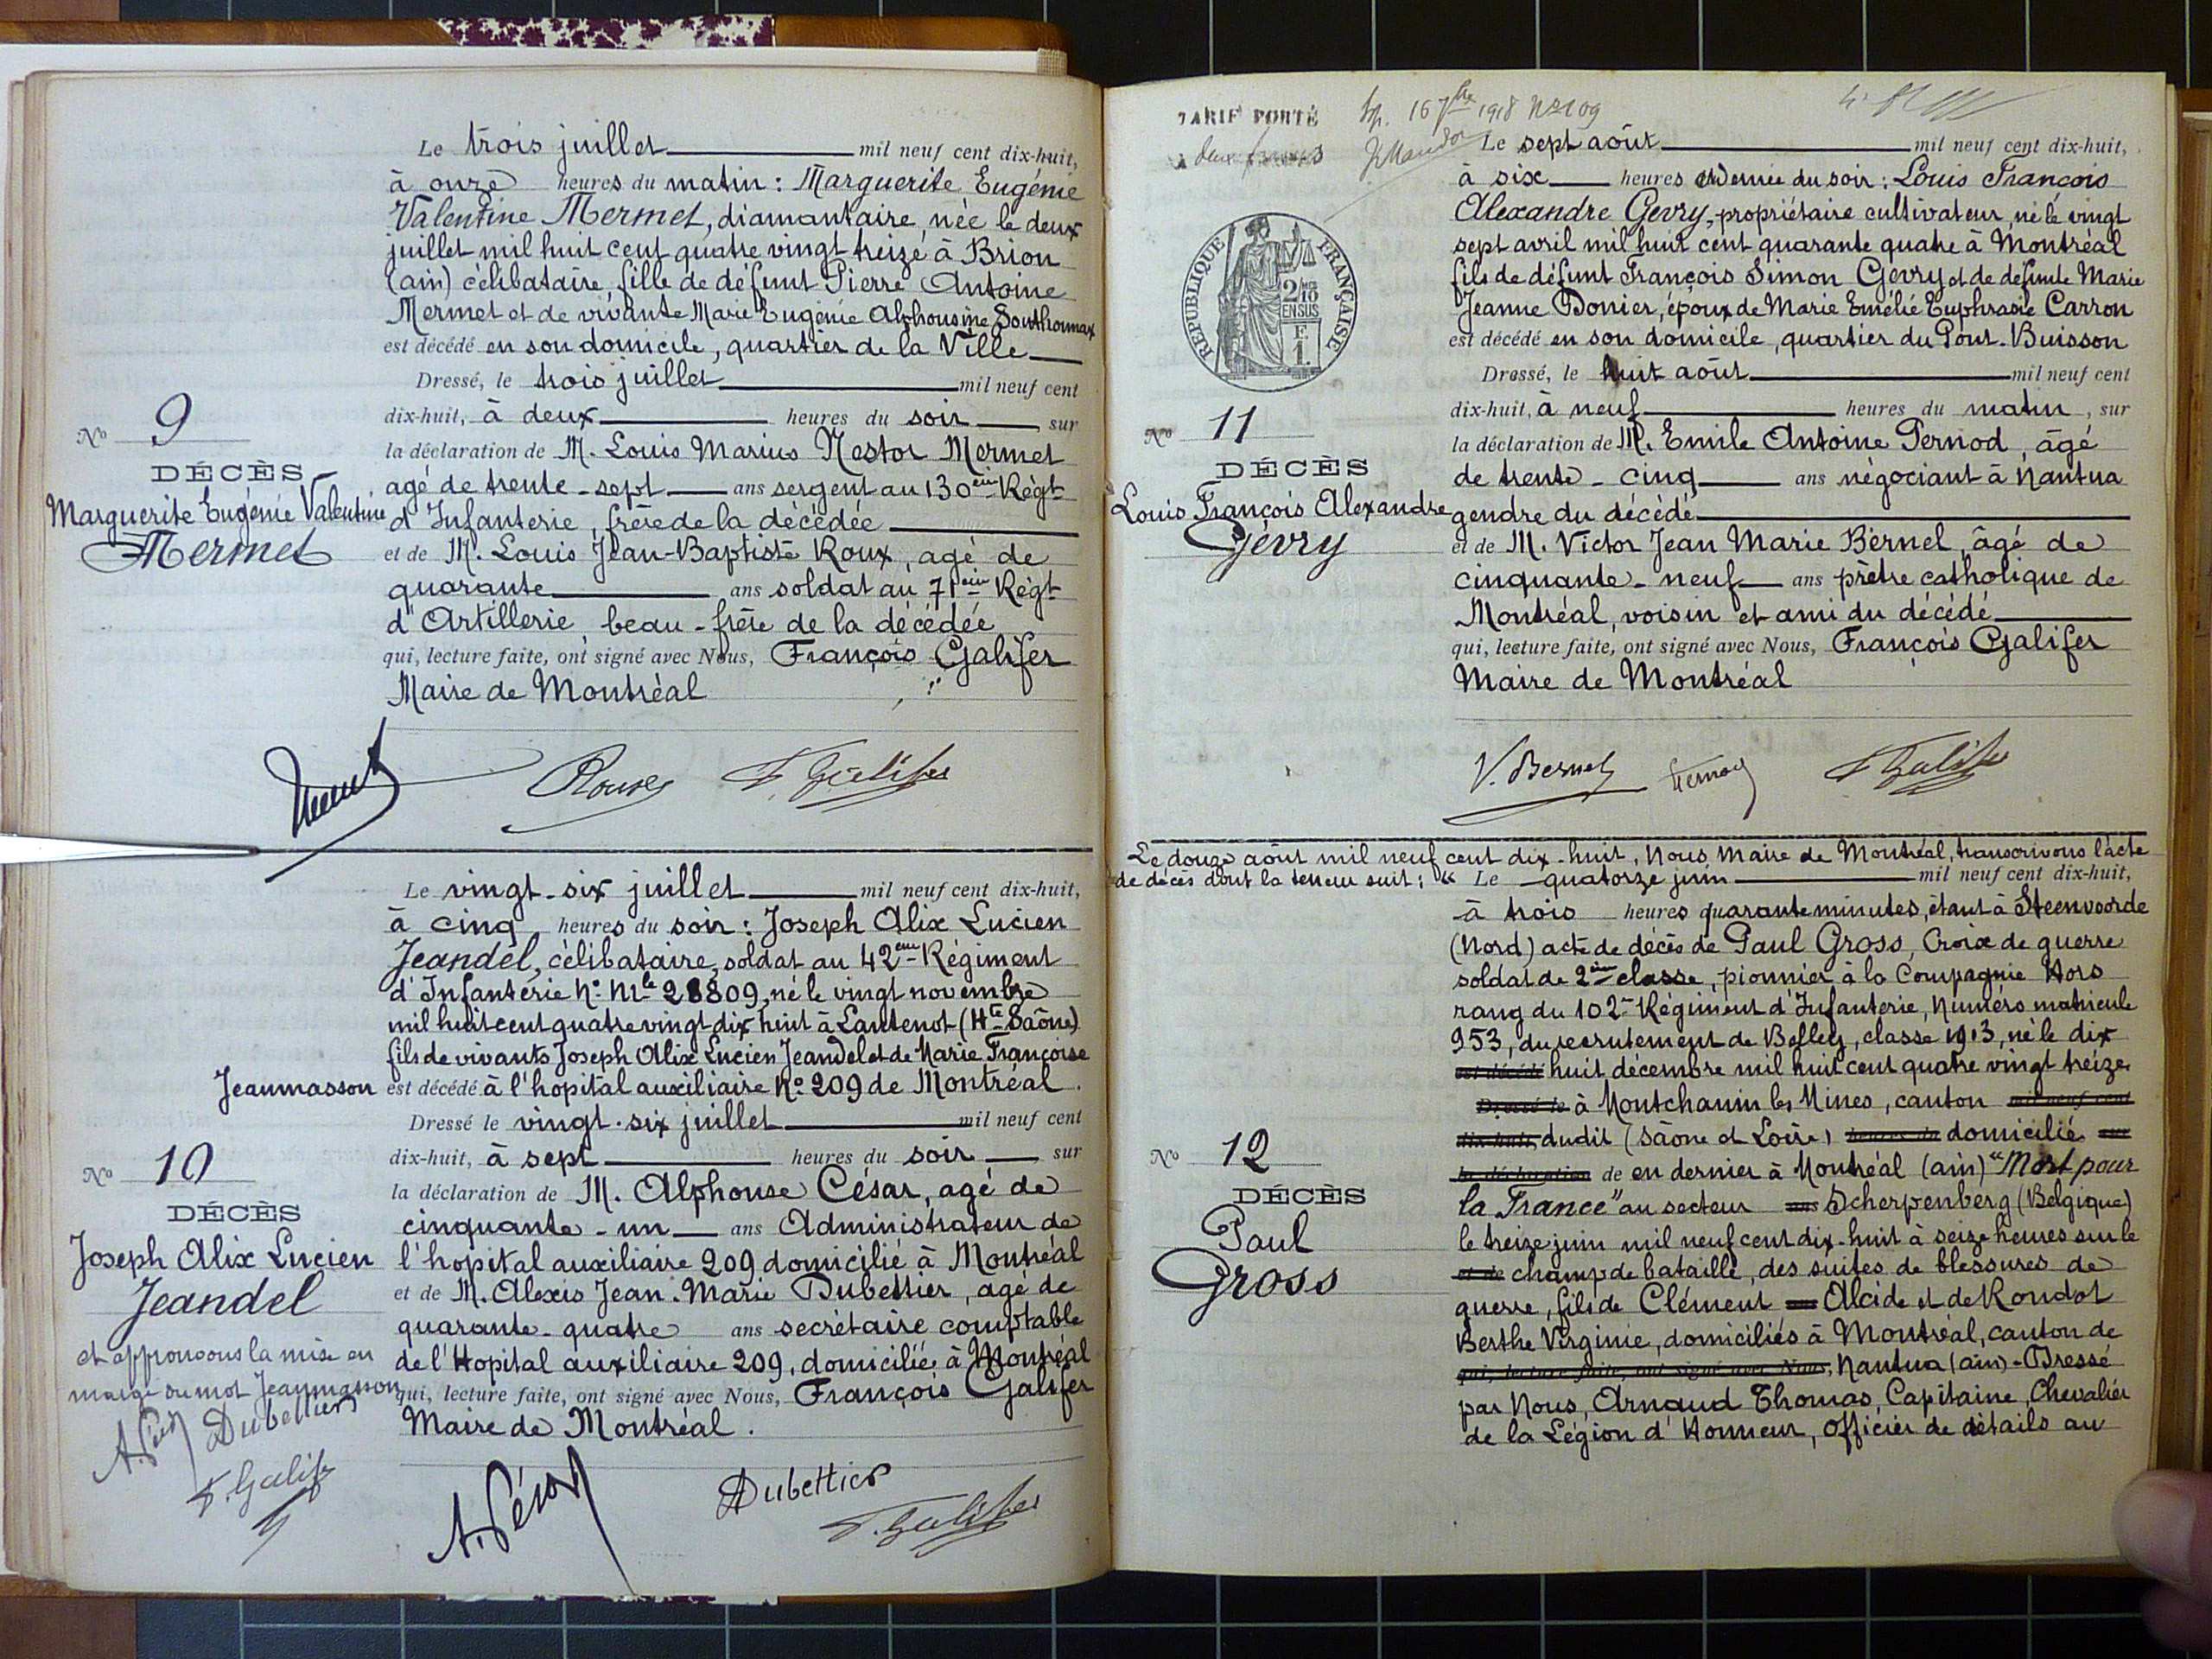 Le trois juillet mil neuf cent dix-huit,
à onze heures du matin : Marguerite Eugénie
Valentine Mermet, diamantaire, née le deux
juillet mil huit cent quatre vingt treize à Brion
(ain) célibataire, fille de défunt Pierre Antoine
Mermet et de vivante Marie Eugénie Alphonsine Sonthonnax
est décédé en son domicile, quartier de la Ville
Dressé, le trois juillet mil neuf cent
dix-huit, à deux heures du soir sur
la déclaration de M. Louis Marius Nestor Mermet
agé de trente-sept ans sergent au 130eme Régt
d'Infanterie, frère de la décédée
et de M. Louis Jean-Baptiste Roux, agé de
quarante ans soldat au 71eme Régt
d'Artillerie, beau-frère de la décédée
qui, lecture faite, ont signé avec Nous, François Galifer
Maire de Montréal
No 9
DÉCÈS
Marguerite Eugénie Valentine
Mermet
F. Galifer
Le vingt-six juillet mil neuf cent dix-huit,
à cinq heures du soir : Joseph Alix Lucien
Jeandel, célibataire, soldat au 42eme Régiment
d'Infanterie No Mle 28809, né le vingt novembre
mil huit cent quatre vingt dix huit à Lantenot (Hte Saône)
fils de vivants Joseph Alix Lucien Jeandel et de Marie Françoise
Jeanmasson est décédé à l'hopital auxiliaire No 209 de Montréal.
Dressé le vingt-six juillet mil neuf cent
dix-huit, à sept heures du soir sur
la déclaration de M. Alphonse César, agé de
cinquante-un ans Administrateur de
l'hopital auxiliaire 209 domicilié à Montréal
et de M. Alexis Jean-Marie Dubettier, agé de
quarante-quatre ans secrétaire comptable
de l'Hopital auxiliaire 209, domiciliée à Montréal
qui, lecture faite, ont signé avec Nous, François Galifer
Maire de Montréal.
No 10
DÉCÈS
Joseph Alix Lucien
Jeandel
et approuvons la mise en
marge du mot Jeanmasson
Dubettier
F. Galifer
Dubettier
F. Galifer
TARIF PORTÉ
à deux francs
16 7bre 1918 No 109
RÉPUBLIQUE FRANÇAISE
2/10
EN SUS
F
1.
Le sept août mil neuf cent dix-huit,
à six heures et demie du soir : Louis François
Alexandre Gevry, propriétaire cultivateur, né le vingt
sept avril mil huit cent quarante quatre à Montréal
fils de défunt François Simon Gevry et de défunte Marie
Jeanne Donier, époux de Marie Emélie Euphrasie Carron
est décédé en son domicile, quartier du Pont-Buisson
Dressé, le huit août mil neuf cent
dix-huit, à neuf heures du matin, sur
la déclaration de M. Emile Antoine Pernod, âgé
de trente-cinq ans négociant à Nantua
gendre du décédé
et de M. Victor Jean Marie Bernel, âgé de
cinquante-neuf ans prêtre catholique de
Montréal, voisin et ami du décédé
qui, lecture faite, ont signé avec Nous, François Galifer
Maire de Montréal
No 11
DÉCÈS
Louis François Alexandre
Gevry
V. Bernel Pernod F. Galifer
Le douze août mil neuf cent dix-huit, Nous, Maire de Montréal, transcrivons l'acte
de décès dont la teneur suit : « Le quatorze juin mil neuf cent dix-huit,
à trois heures quarante minutes, étant à Steenvoorde
(Nord) acte de décès de Paul Gross, Croix de guerre
soldat de 2eme classe, pionnier à la Compagnie Hors
rang du 102e Régiment d'Infanterie, Numéro matricule
953, du recrutement de Belley, classe 1913, né le dix
est décédé huit décembre mil huit cent quatre vingt treize
Dressé le à Montchanin les Mines, canton mil neuf cent
dix-huit, dudit (Saône et Loire) heures du domicilié sur
la déclaration de en dernier à Montréal (ain) "Mort pour
la France" au secteur ans Scherpenberg (Belgique)
le treize juin mil neuf cent dix-huit à seize heures sur le
et de champ de bataille, des suites de blessures de
guerre, fils de Clément ans Alcide et de Rondot
Berthe Virginie, domiciliés à Montréal, canton de
qui, lecture faite, ont signé avec Nous, Nantua (ain) - Dressé
par Nous, Arnaud Thomas, Capitaine, Chevalier
de la Légion d'Honneur, Officier de détails au
No 12
DÉCÈS
Paul
Gross